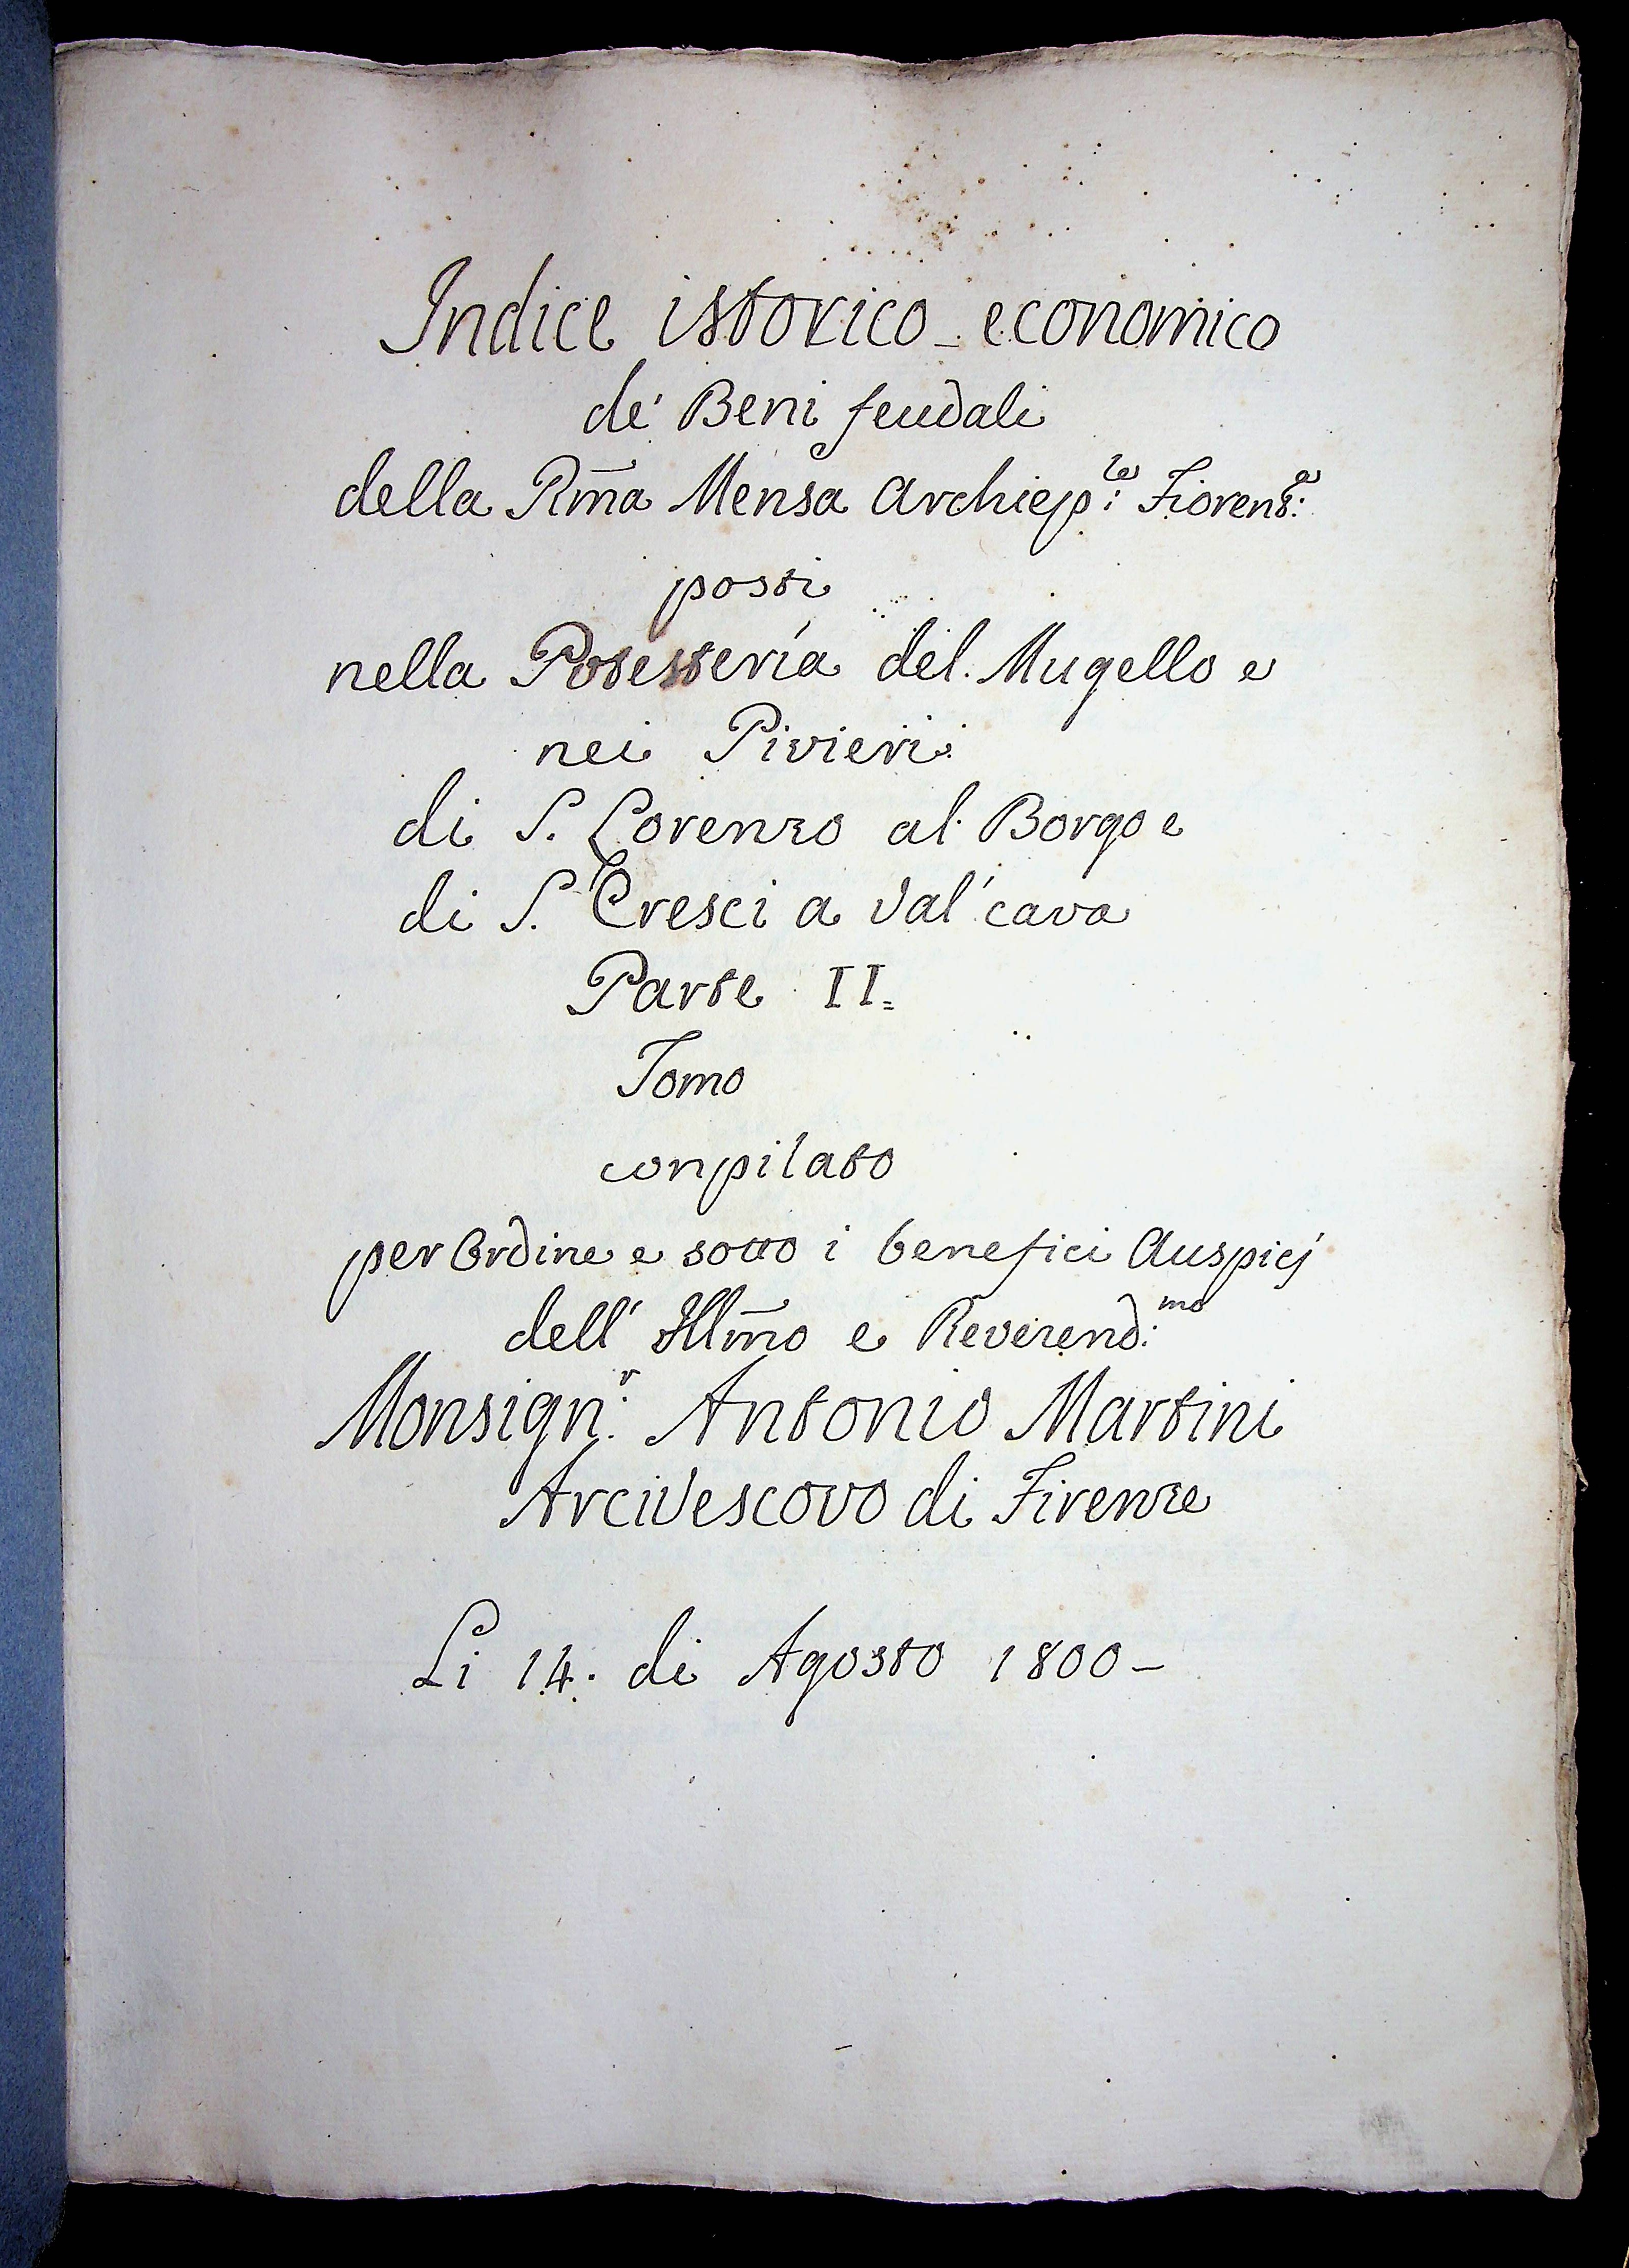 Indice istorico-economico
de' Beni feudali
della Rm̄a Mensa Archiep:le Fiorent:a
posti
nella Potesteria del Mugello e
nei Pivieri
di S. Lorenzo al Borgo e
di S. Cresci a Val'cava
Parte II=
Tomo
conpilato
per Ordine e sotto i benefici Auspicj
dell' Illm̄o e Reverend:mo
Monsign:r Antonio Martini
Arcivescovo di Firenze
Li 14. di Agosto 1800-